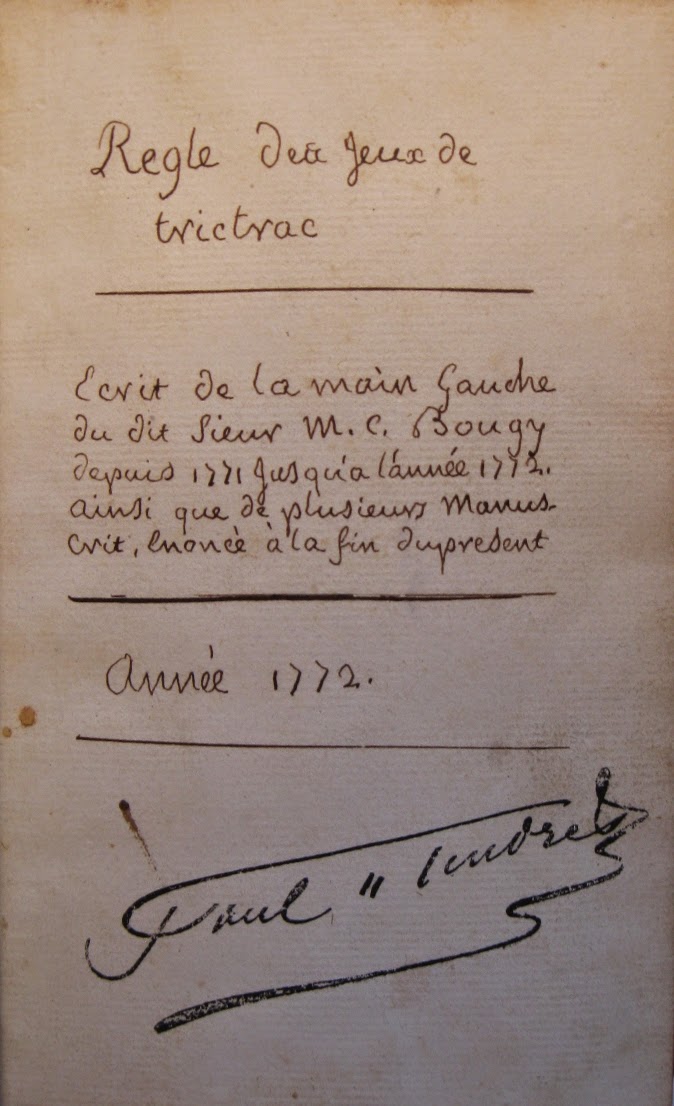 Regle des Jeux de
trictrac
Ecrit de la main Gauche
du dit Sieur M. C. Bougy
depuis 1771 Jusqu'a l'année 1772.
ainsi que de plusieurs Manus-
crit, Enoncé à la fin du present
Année 1772.
Paul "